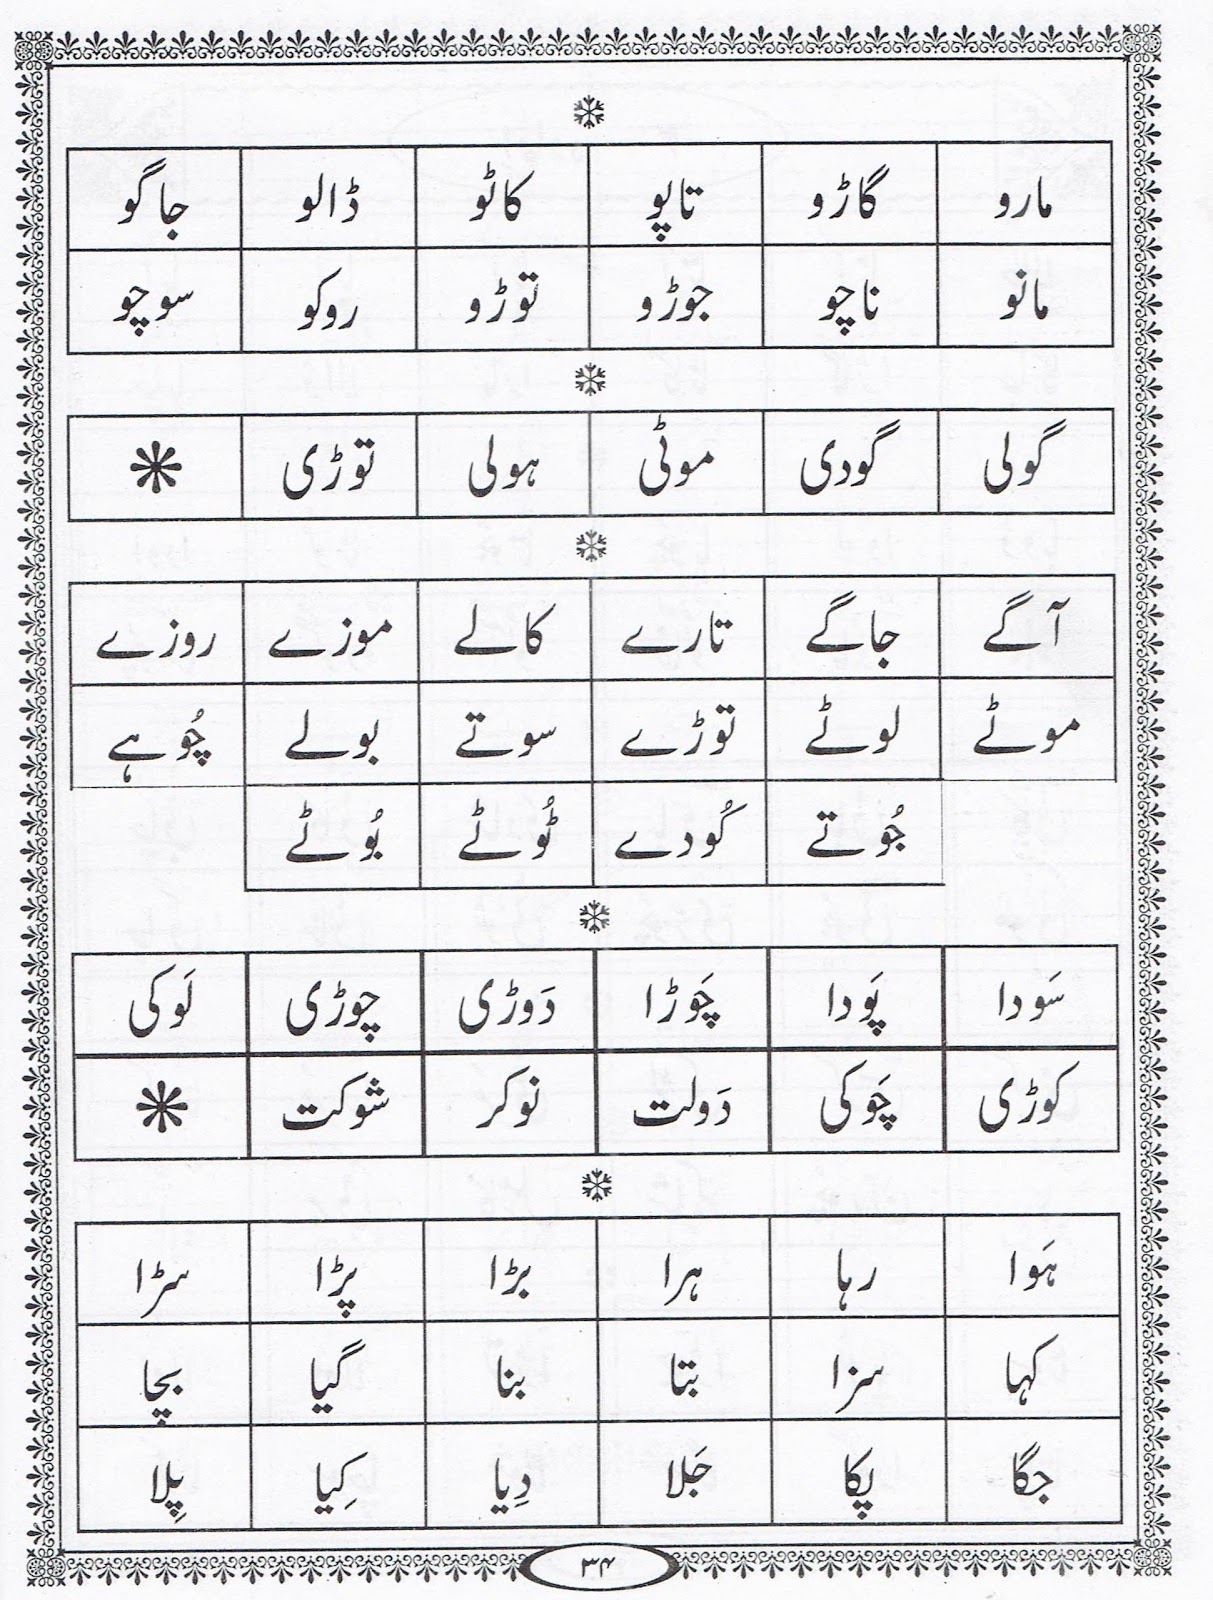 مارو گاڑو تاپو کاٹو ڈالو جاگو
مانو ناچو جوڑو توڑو روکو سوچو
گولی گودی موٹی ہولی توڑی
آگے جاگے تارے کالے موزے روزے
موٹے لوٹے توڑے سوتے بولے چُوہے
جُوتے کُودے ٹُوٹے بُوٹے
سَودا پَودا چَوڑا دَوڑی چوڑی لَوکی
کوڑی چَوکی دَولت نوکر شوکت
ہَوا رہا ہرا بڑا پڑا سڑا
کہا سزا بتا بنا گیا بچا
جگا پکا جَلا دِیا کِیا پِلا
۳۴